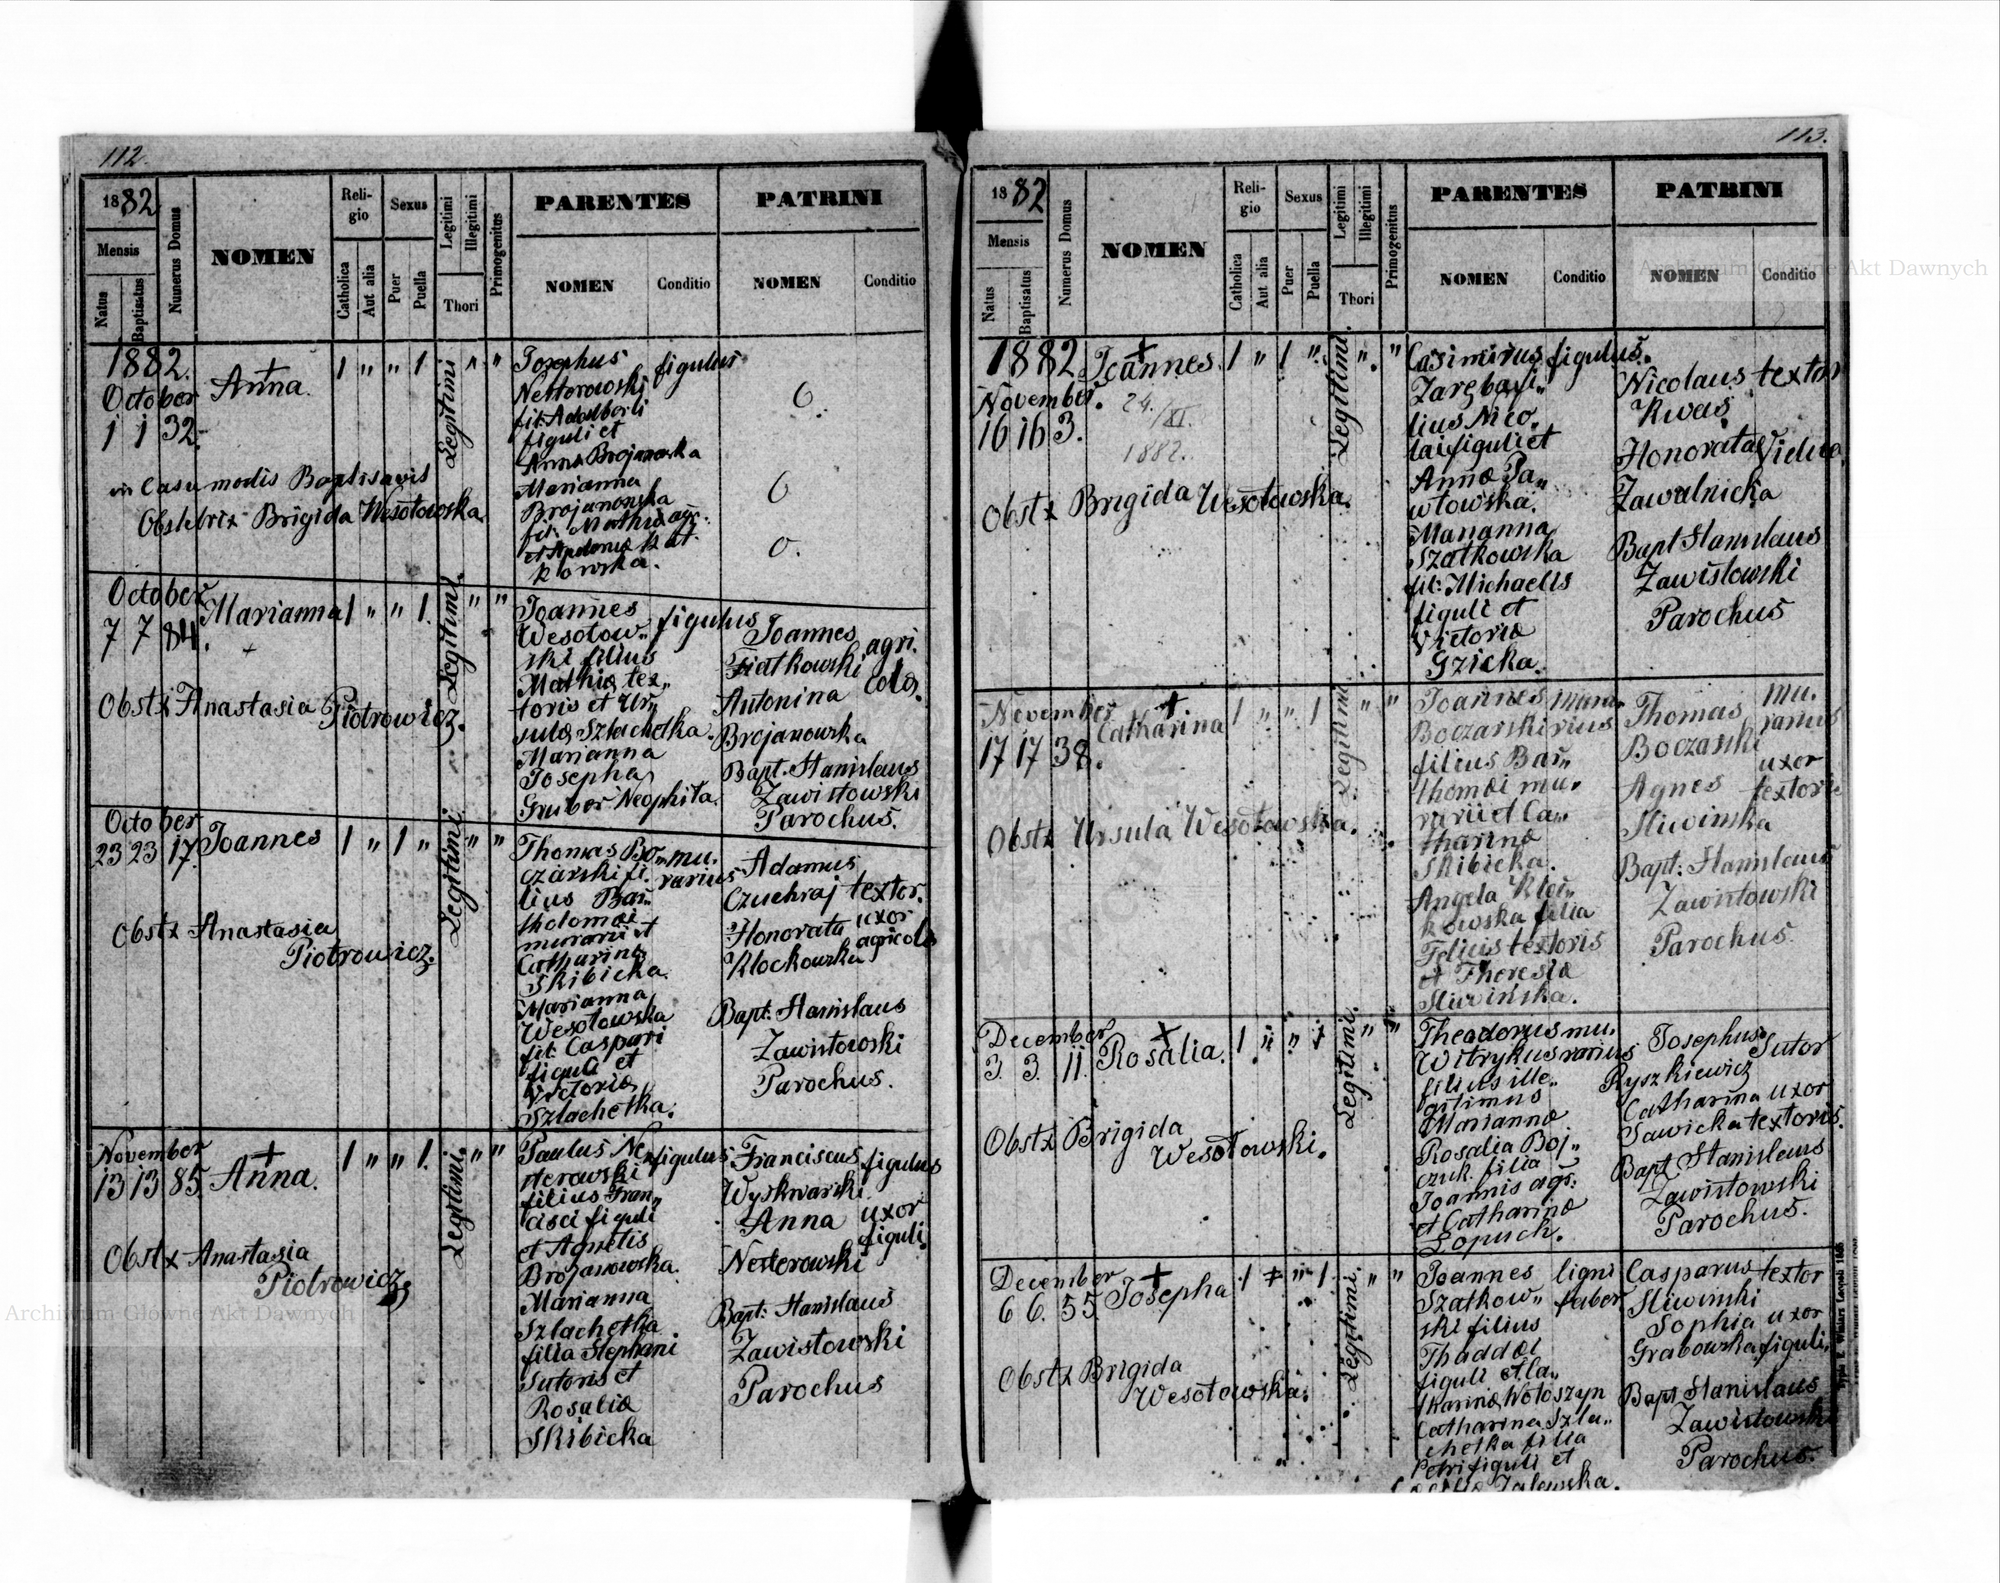 112.
1882
Mensis
Natus
Baptisatus
Numerus Domus
NOMEN
Religio
Catholica
Aut alia
Sexus
Puer
Puella
Legitimi
Illegitimi
Thori
Primogenitus
PARENTES
NOMEN
Conditio
PATRINI
NOMEN
Conditio
1882.
October
1 1 32.
Anna.
1 " " 1
Legitimi
" "
Josephus figulus
Nesterowski
fil: Adalberti
figuli et
Anna Brojanowska
Marianna
Brojanowska
fil. Mathiæ agr.
et Apoloniæ Rat
kowska.
0.
0
0.
in Casu
Obstetrix Brigida Wesołowska.
October
7 7 84.
Marianna
1 " " 1.
Legitimi.
" "
Joannes figulus
Wesołow„
ski filius
Mathiæ tex„
toris et Ur„
sulæ Szlachetka.
Marianna
Josepha
Gruber Neophita.
Joannes agri.
Fiatkowski cola.
Antonina
Brojanowska
Bapt. Stanislaus
Zawistowski
Parochus.
Obstx Anastasia Piotrowicz.
October
23 23 17.
Joannes
1 " 1 "
Legitimi
" "
Thomas Bo„ mu.
czarski fi. rarius
lius Bar„
tholomæi
murarii et
Catharinæ
Skibicka.
Marianna
Wesołowska
fil: Caspari
figuli et
Victoriæ
Szlachetka.
Adamus
Czuchraj textor.
Honorata uxor
Klockowska agricolæ
Bapt: Stanislaus
Zawistowski
Parochus.
Obstx Anastasia
Piotrowicz.
November
13 13 85.
Anna.
1 " " 1.
Legitimi.
" "
Paulus Ne„ figulus
sterowski
filius Fran„
cisci figuli
et Agnetis
Brojanowska.
Marianna
Szlachetka.
filia Stephani
Sutoris et
Rosaliæ
Skibicka
Franciscus figulus
Wyskwarski.
Anna uxor
Nesterowski figuli.
Bapt: Stanislaus
Zawistowski
Parochus
Obstx Anastasia
Piotrowicz
113.
1882
Mensis
Natus
Baptisatus
Numerus Domus
NOMEN
Religio
Catholica
Aut alia
Sexus
Puer
Puella
Legitimi
Illegitimi
Thori
Primogenitus
PARENTES
NOMEN
Conditio
PATRINI
NOMEN
Conditio
1882
November.
16 16 3.
Joannes.
24./XI.
1882.
1 " 1 "
Legitimi.
" "
Casimirus figulus.
Zaręba fi„
lius Nico„
lai figuli et
Annæ Pa„
włowska.
Marianna
Szatkowska
fil: Michaelis
figuli et
Victoriæ
Gzicka.
Nicolaus textor
Kwas
Honorata Vidua
Zawalnicka
Bapt Stanislaus
Zawistowski
Parochus
Obstx Brigida Wesołowska.
November
17 17 38.
Catharina
1 " " 1
Legitimi
" "
Joannes mura„
Boczarski rius
filius Bar„
tholomæi mu„
rarii et Ca„
tharinæ
Skibicka.
Angela Kloc„
kowska filia
Felicis textoris
et Theresiæ
Śliwińska.
Thomas mu.
Boczarski rarius
Agnes uxor
Śliwinska textoris
Bapt: Stanislaus
Zawistowski
Parochus.
Obstx Ursula Wesołowska.
December
3. 3. 11.
Rosalia.
1 " " 1
Legitimi.
" "
Theodorus mu.
Witrykus rarius
filius ille„
gitimus
Mariannæ
Rosalia Boj„
czuk filia
Joannis agr.
et Catharinæ
Łopuch.
Josephus Sutor
Ryszkiewicz
Catharina uxor
Sawicka textoris.
Bapt Stanislaus
Zawistowski
Parochus.
Obstx Brigida
Wesołowski.
December
6 6. 55.
Josepha
1 " " 1
Legitimi.
" "
Joannes ligni
Szatkow„ faber
ski filius
Thaddæi
figuli et Ca„
tharinæ Wołoszyn
Catharina Szla„
chetka filia
Petri figuli et
Zalewska.
Casparus textor
Śliwinski
Sophia uxor
Grabowska figuli.
Bapt Stanislaus
Zawistowski
Parochus.
Obstx Brigida
Wesołowska.
Archiwum Główne Akt Dawnych
Archiwum Główne Akt Dawnych